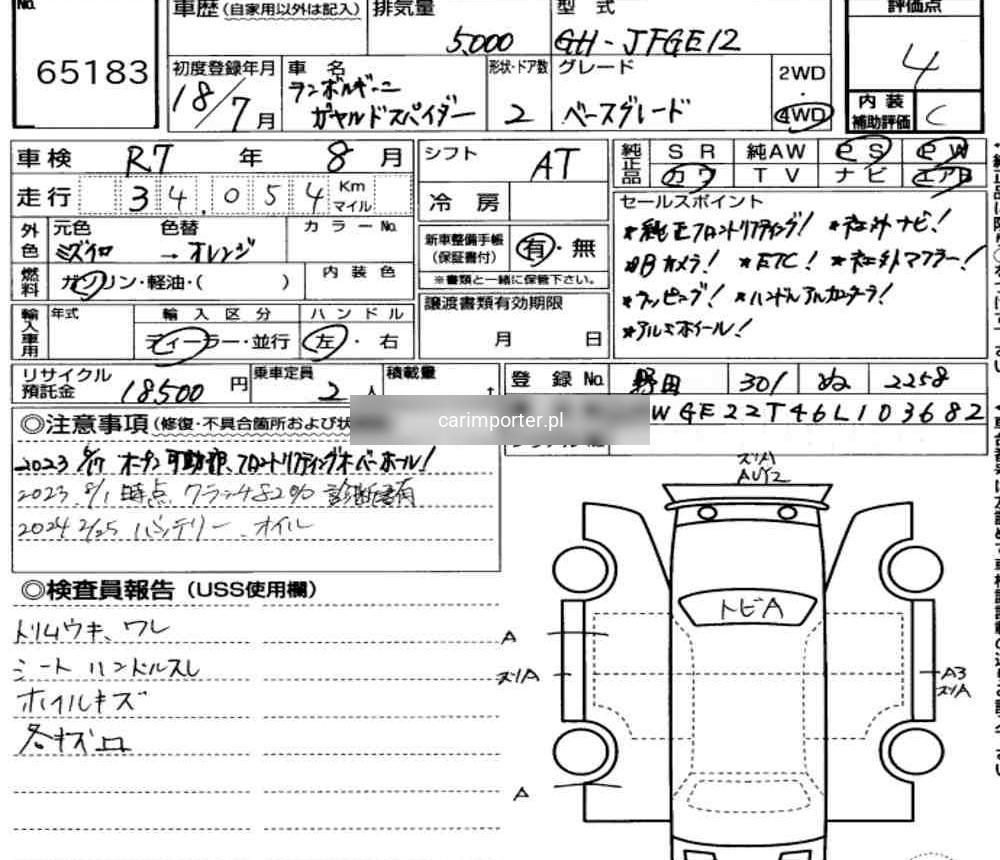 No.
65183
車歴(自家用以外は記入)
排気量 5.000
型式 GH-JFGE12
評価点
4
初度登録年月 18/7月
車名 ランボルギーニ
ガヤルドスパイダー
形状・ドア数 2
グレード ベースグレード
2WD
・
4WD
内装
補助評価 C
車検 R7年8月
シフト AT
純正品 SR 純AW PS PW
カワ TV ナビ エアB
走行 34.054 Km マイル
冷房
外色 元色 色替 カラーNo.
ミズイロ → オレンジ
燃料 ガソリン・軽油・( )
内装色
新車整備手帳
(保証書付) 有・無
※書類と一緒に保管下さい。
セールスポイント
*純正フロントリフティング! *社外ナビ!
*Bカメラ! *ETC! *社外マフラー!
*ラッピング! *ハンドルアルカンターラ!
*アルミホイール!
輸入車用 年式 輸入区分 ハンドル
ディーラー・並行 左・右
譲渡書類有効期限
月 日
リサイクル
預託金 18,500円
乗車定員 2人
積載量 t
登録No. 野田 301 ぬ 2258
carimporter.pl
WGE22T46L103682
◎注意事項(修復・不具合箇所および状
2023 8/17 オープン可動部、フロントリフティングオーバーホール!
2023.8/1時点 クラッチ82% 診断書有
2024 2/25 バッテリー、オイル
◎検査員報告(USS使用欄)
トリムウキ、ワレ
シート ハンドルスレ
ホイルキズ
各キズ凹
ズリA
AU2
トビA
A
ズリA
A3
ズリA
A